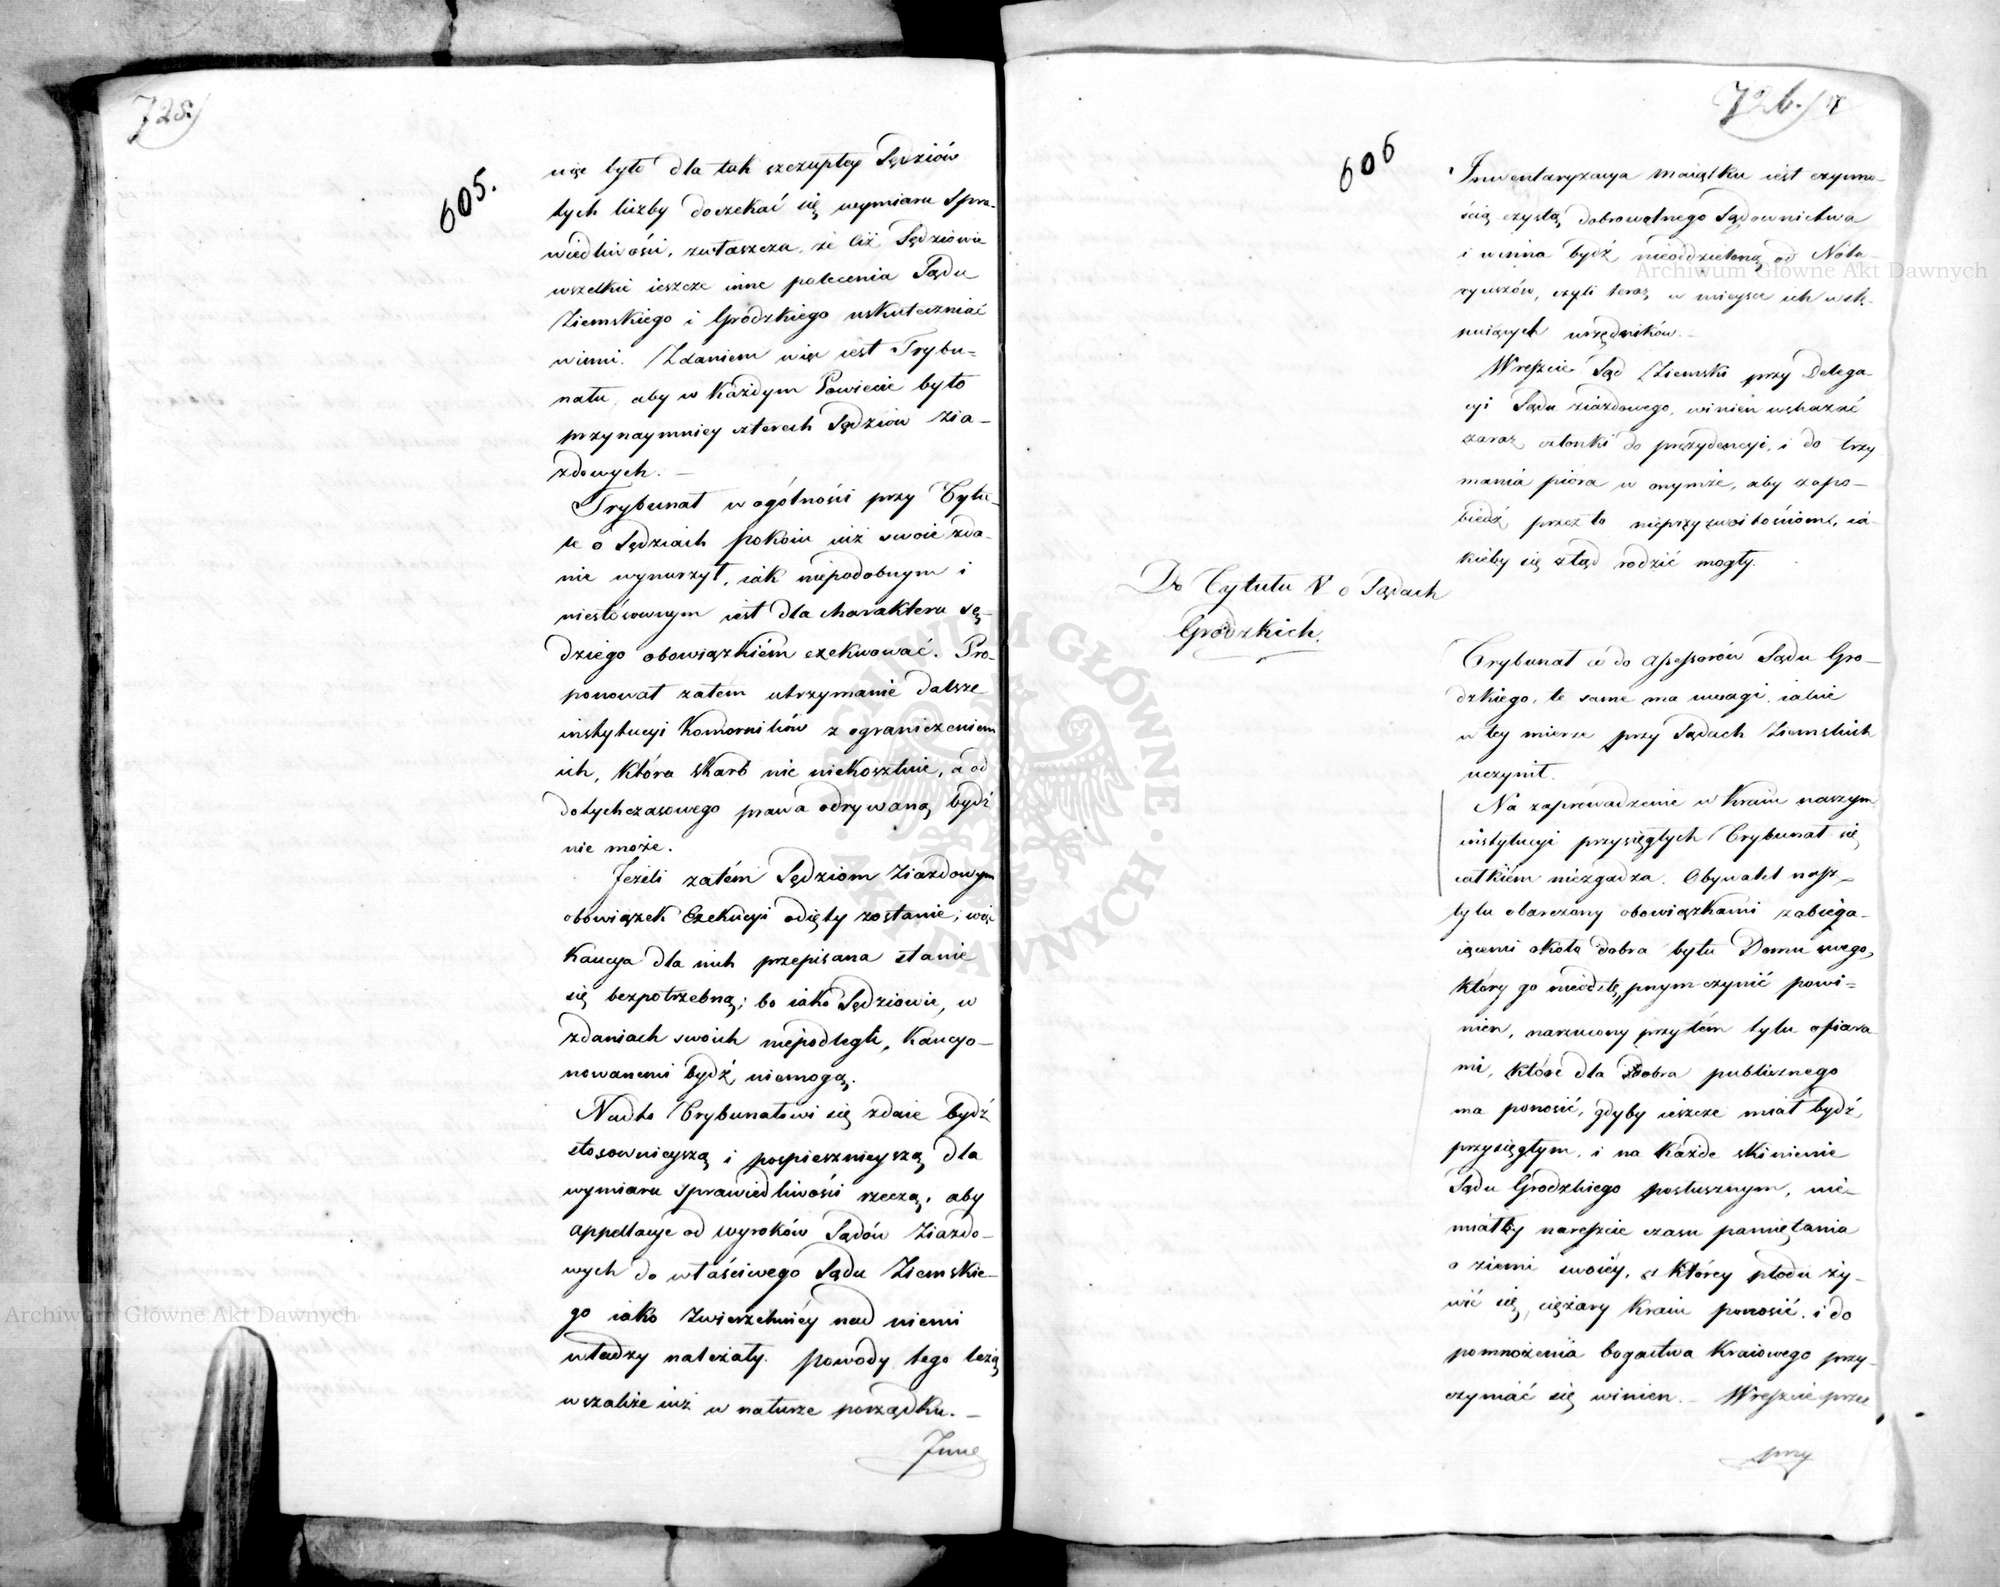 725.)
605.
nąe było dla tak szczupłey Sędziów
tych liczby doczekać się wymiaru Spra-
wiedliwości, zwłaszcza, że Ciż Sędziowie
wszelkie ieszcze inne polecenia Sądu
Ziemskiego i Grodzkiego uskuteczniać
winni. Zdaniem więc iest Trybu-
nału, aby w każdym Powiecie było
przynaymniey czterech Sędziów Zia-
zdowych. —
Trybunał w ogólności przy Tytu-
le o Sędziach pokoiu iuż swoie zda-
nie wynurzył, iak niepodobnym i
niestósownym iest dla charakteru sę-
dziego obowiązkiem exekwować. Pro-
ponował zatem utrzymanie dalsze
instytucyi Komorników z ograniczeniem
ich, która skarb nic niekosztuie, a od
dotychczasowego prawa odrywaną bydź
nie może.
Jeżeli zatém Sędziom Ziazdowym
obowiązek Exekucyi odięty zostanie; więc
Kaucya dla nich przepisana stanie
się bezpotrzebną; bo iako Sędziowie, w
zdaniach swoich niepodlegli, Kaucyo-
nowanemi bydź niemogą.
Nadto Trybunałowi się zdaie bydź
stosownieyszą i pospiesznieyszą dla
wymiaru sprawiedliwości rzeczą, aby
appellacye od wyroków Sądów Ziazdo-
wych do właściwego Sądu Ziemskie-
go iako Zwierzchniéy nad niemi
władzy należały. Powody tego leżą
wszakże iuż w naturze porządku. —
Inne
726.) 17
606
Inwentaryzacya maiątku iest czynno-
ścią czystą dobrowolnego Sądownictwa
i winna bydź nieoddzieloną od Nota-
ryuszów, czyli teraz w mieysce ich wstę-
puiących urzędników. —
Wreszcie Sąd Ziemski przy Delega-
cyi Sądu ziazdowego, winien wskazać
zaraz członki do prezydencyi, i do trzy
mania pióra w onymże, aby zapo-
biedz przez to nieprzyzwoitościom, ia-
kieby się ztąd rodzić mogły.
Do Tytułu V o Sądach
Grodzkich.
Trybunał co do assessorów Sądu Gro-
dzkiego, te same ma uwagi, iakie
w tey mierze przy Sądach Ziemskich
uczynił.
Na zaprowadzenie w Kraiu naszym
instytucyi przysięgłych Trybunał się
całkiem niezgadza. Obywatel nasz
tylu obarczony obowiązkami zabiega-
iącemi około dobra bytu Domu swego,
który go nieodstępnym czynić powi-
nien, narzucony przytém tylu ofiara
mi, które dla Dobra publicznego
ma ponosić, gdyby ieszcze miał bydź
przysięgłym, i na każde skinienie
Sądu Grodzkiego posłusznym, nie-
miałby nareszcie czasu pamiętania
o ziemi swoiéy, z któréy płodu ży-
wić się, ciężary Kraiu ponosić, i do
pomnożenia bogactwa Kraiowego przy-
czyniać się winien. — Wreszcie przez
przy
Archiwum Główne Akt Dawnych
Archiwum Główne Akt Dawnych
ARCHIWUM GŁÓWNE AKT DAWNYCH